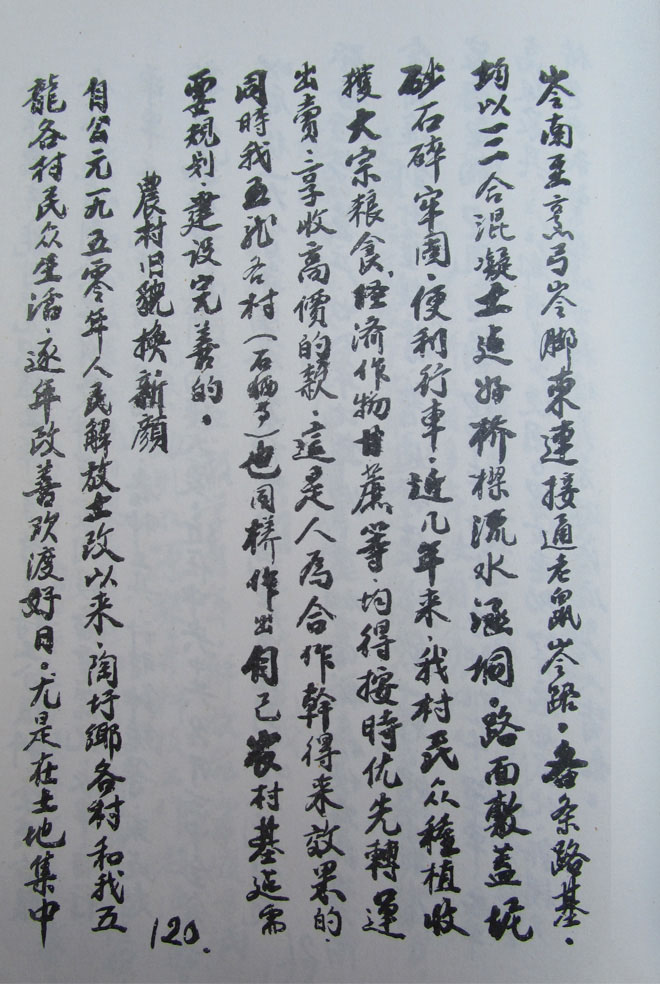 岺南至烹弓岺脚来連接通老鼠岺路。各条路基。
均以三合混凝土造好桥樑流水涵垌。路面敷盖
砂石碎牢固、便利行車。近几年来、我村民众種植收
獲大宗粮食、经济作物甘蔗等、均得按時优先轉運
出卖、享收高價的款、這是人為合作幹得来效果的、
同時我五龙各村（石栖等）也同樣作出自己农村基造需
要规划、建设完善的。
農村旧貌換新顔
自公元一九五零年人民解放土改以来、陶圩鄉各村和我五
龍各村民众生活、逐年改善欢渡好日。尤是在土地集中
120.